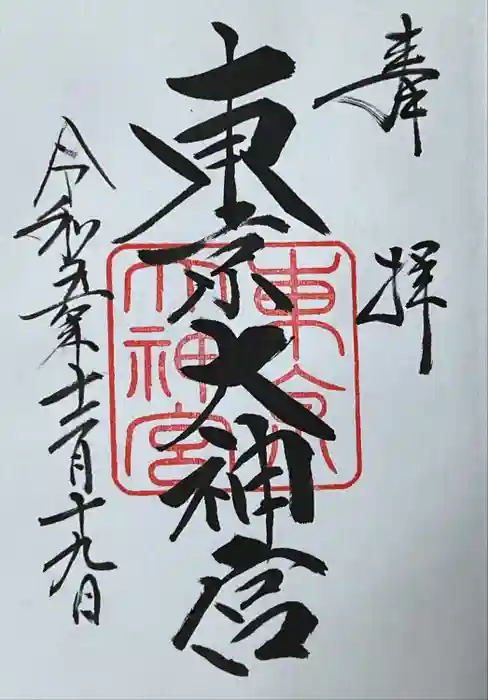 奉拝
東京大神宮
東京
大神宮
令和五年十二月十九日